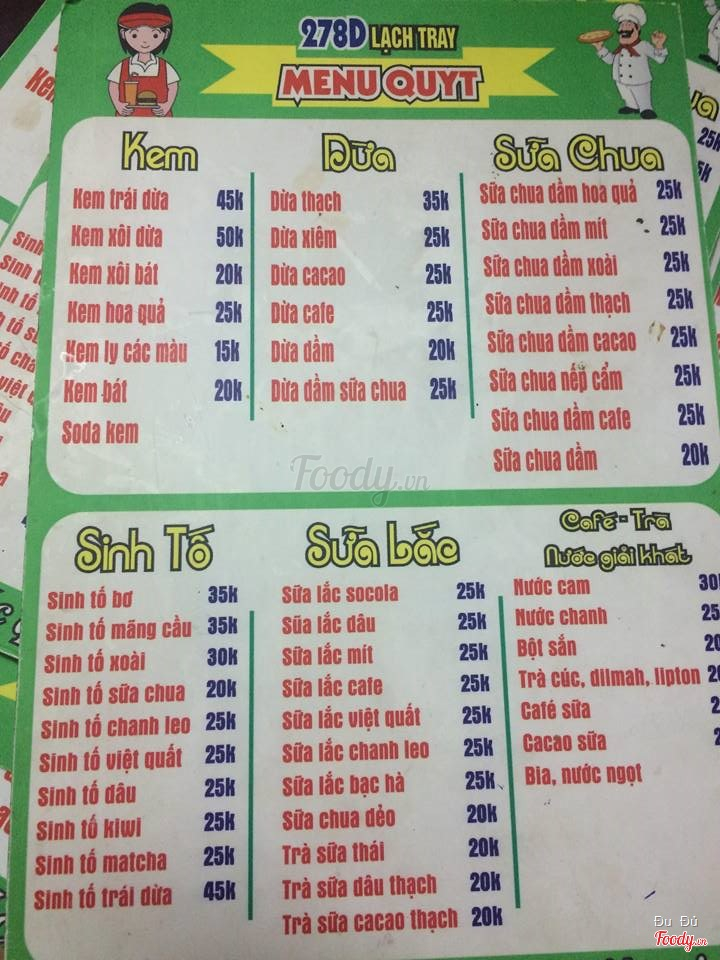 278D LẠCH TRAY
MENU QUYT
Kem
Kem trái dừa 45k
Kem xôi dừa 50k
Kem xôi bát 20k
Kem hoa quả 25k
Kem ly các màu 15k
Kem bát 20k
Soda kem
Dừa
Dừa thạch 35k
Dừa xiêm 25k
Dừa cacao 25k
Dừa cafe 25k
Dừa dầm 20k
Dừa dầm sữa chua 25k
Sữa Chua
Sữa chua dầm hoa quả 25k
Sữa chua dầm mít 25k
Sữa chua dầm xoài 25k
Sữa chua dầm thạch 25k
Sữa chua dầm cacao 25k
Sữa chua nếp cẩm 25k
Sữa chua dầm cafe 25k
Sữa chua dầm 20k
Foody.vn
Sinh Tố
Sinh tố bơ 35k
Sinh tố mãng cầu 35k
Sinh tố xoài 30k
Sinh tố sữa chua 20k
Sinh tố chanh leo 25k
Sinh tố việt quất 25k
Sinh tố dâu 25k
Sinh tố kiwi 25k
Sinh tố matcha 25k
Sinh tố trái dừa 45k
Sữa lắc
Sữa lắc socola 25k
Sữa lắc dâu 25k
Sữa lắc mít 25k
Sữa lắc cafe 25k
Sữa lắc việt quất 25k
Sữa lắc chanh leo 25k
Sữa lắc bạc hà 25k
Sữa chua dẻo 20k
Trà sữa thái 20k
Trà sữa dâu thạch 20k
Trà sữa cacao thạch 20k
Café - Trà
Nước giải khát
Nước cam 30
Nước chanh 25
Bột sắn 20
Trà cúc, dilmah, lipton 20
Café sữa 2
Cacao sữa 2
Bia, nước ngọt
Đu Đủ
Foody.vn